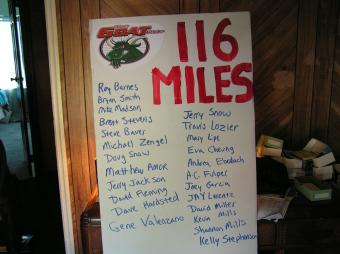 GOAT
116
MILES
Roy Barnes
Bryan Smith
Mike Madson
Brett Stevens
Steve Baver
Michael Zengel
Doug Snow
Matthew Amor
Jerry Jackson
David Fleming
Dave Hardsted
Gene Valenzano
Jerry Snow
Travis Lozier
Mary Lee
Eva Cheung
Andrea
A.C. Fulper
Joey Garcia
JAY
David Miller
Kevin Mills
Shannon Mills
Kelly Stephenson